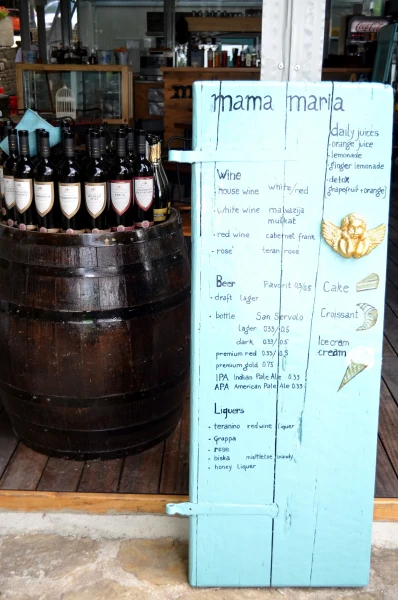 mama maria
Wine
- house wine white/red
- white wine malvazija
muškat
- red wine cabernet frank
- rosé teran rosé
Beer Favorit 0.3/0.5
- draft lager
- bottle San Servolo
lager 0.33/0.5
dark 0.33/0.5
premium red 0.33/0.5
premium gold 0.75
IPA Indian Pale Ale 0.33
APA American Pale Ale 0.33
Liquers
- teranino red wine liquer
- Grappa
- rose
- biska mistletoe brandy
- honey liquer
daily juices
- orange juice
- lemonade
- ginger lemonade
- detox
(grapefruit + orange)
Cake
Croissant
Ice cream
cream
Coca-Cola